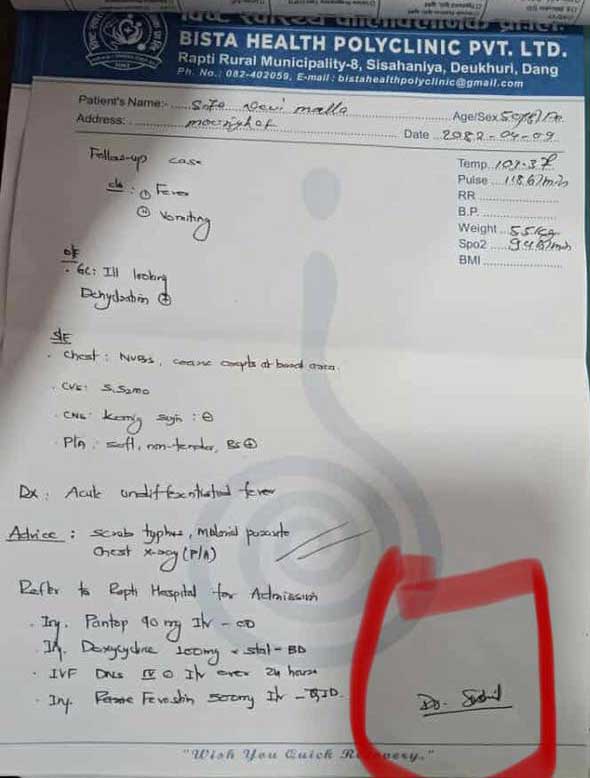 BISTA HEALTH POLYCLINIC PVT. LTD.
Rapti Rural Municipality-8, Sisahaniya, Deukhuri, Dang
Ph. No.: 082-402059, E-mail: bistahealthpolyclinic@gmail.com
Patient's Name:- Devi malla Age/Sex
Address: Date 2082-04-09
Follow-up case
Temp.
Pulse 118 b/min
RR
B.P.
Weight 55kg
Spo2 94
BMI
c/o : Fever
Vomiting
o/E
GC: Ill looking
Dehydration ⊕
S/E
Chest: NVBS, at area.
CVS: S1S2M0
CNS: kernig sign : ⊖
P/A: soft, non-tender, BS⊕
Dx: Acute undifferentiated fever
Advice : scrub typhus, Malarial
Chest x-ray (P/A)
Refer to Rapti Hospital for Admission
Inj. Pantop 40 mg IV - OD
Inj. Doxycycline 100mg stat - BD
IVF DNS IV over 24 hours
Inj. 500mg IV -
Dr.
"Wish You Quick Recovery."